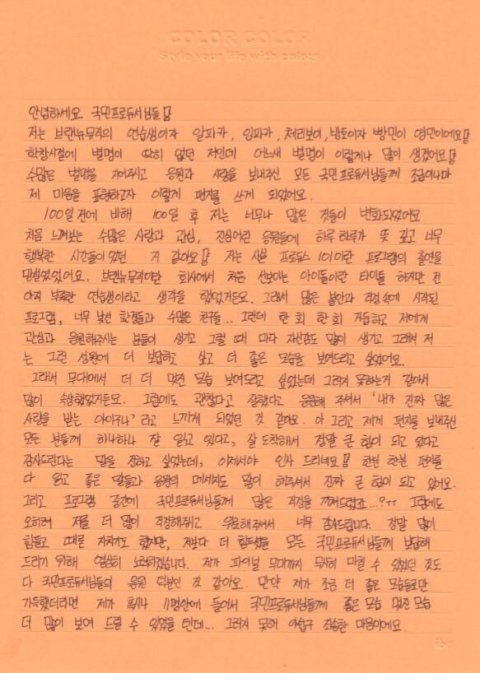 COLOR COLOR
Style your life with colour
안녕하세요 국민프로듀서님들!!
저는 브랜뉴뮤직의 연습생이자 알파카, 임파카, 체리보이, 남돌이자 빵민이 영민이에요!!
학창시절에 별명이 딱히 없던 저인데 어느새 별명이 이렇게나 많이 생겼어요!!
수많은 별명을 지어주고 응원과 사랑을 보내주신 모든 국민프로듀서님들께 조금이나마
제 마음을 표현하고자 이렇게 편지를 쓰게 되었어요.
100일 전에 비해 100일 후 저는 너무나 많은 것들이 변화되었어요
처음 느껴보는 수많은 사랑과 관심, 진심어린 응원들에 하루하루가 뜻 깊고 너무
행복한 시간들이었던 거 같아요!! 저는 사실 프로듀스 101이란 프로그램의 출연을
망설였었어요. 브랜뉴뮤직이란 회사에서 처음 선보이는 아이돌이란 타이틀 하지만 전
아직 부족한 연습생이라고 생각을 했었거든요. 그래서 많은 불안과 걱정 속에 시작된
프로그램, 너무 낯선 환경들과 수많은 친구들.. 그런데 한 회 한 회 거듭하고 저에게
관심과 응원해주시는 분들이 생기고 그럴 때 마다 자신감도 많이 생기고 그래서 저
는 그런 성원에 더 보답하고 싶고 더 좋은 모습을 보여드리고 싶었어요.
그래서 무대에서 더 더 멋진 모습 보여드리고 싶었는데 그러지 못하는거 같아서
많이 속상했었거든요. 그럼에도 괜찮다고 잘했다고 응원해 주셔서 '내가 진짜 많은
사랑을 받는 아이구나' 라고 느끼게 되었던 것 같아요. 아 그리고 제게 편지를 보내주신
모든 분들께 하나하나 잘 읽고 있다고, 잘 도착해서 정말 큰 힘이 되고 있다고
감사드린다는 말을 전하고 싶었는데, 이제서야 인사 드리네요!! 한번 한번 편지를
다 읽고 좋은 말들과 응원의 메세지도 많이 해주셔서 진짜 큰 힘이 되고 있어요.
그리고 프로그램 중간에 국민프로듀서님들께 많은 걱정을 끼쳐드렸죠...?ㅜㅜ 그럼에도
오히려 저를 더 많이 걱정해주시고 위로해주셔서 너무 감사드립니다. 정말 많이
힘들고 때론 지치기도 했지만, 저보다 더 힘드셨을 모든 국민프로듀서님들께 보답해
드리기 위해 열심히 노력하겠습니다. 제가 파이널 무대까지 무사히 마칠 수 있었던 것도
다 국민프로듀서님들의 응원 덕분인 것 같아요. 만약 제가 조금 더 좋은 모습들로만
가득했더라면 제가 혹시나 11명 안에 들어서 국민프로듀서님들께 좋은 모습 멋진 모습
더 많이 보여 드릴 수 있었을 텐데... 그러지 못해 아쉽고 죄송한 마음이에요.